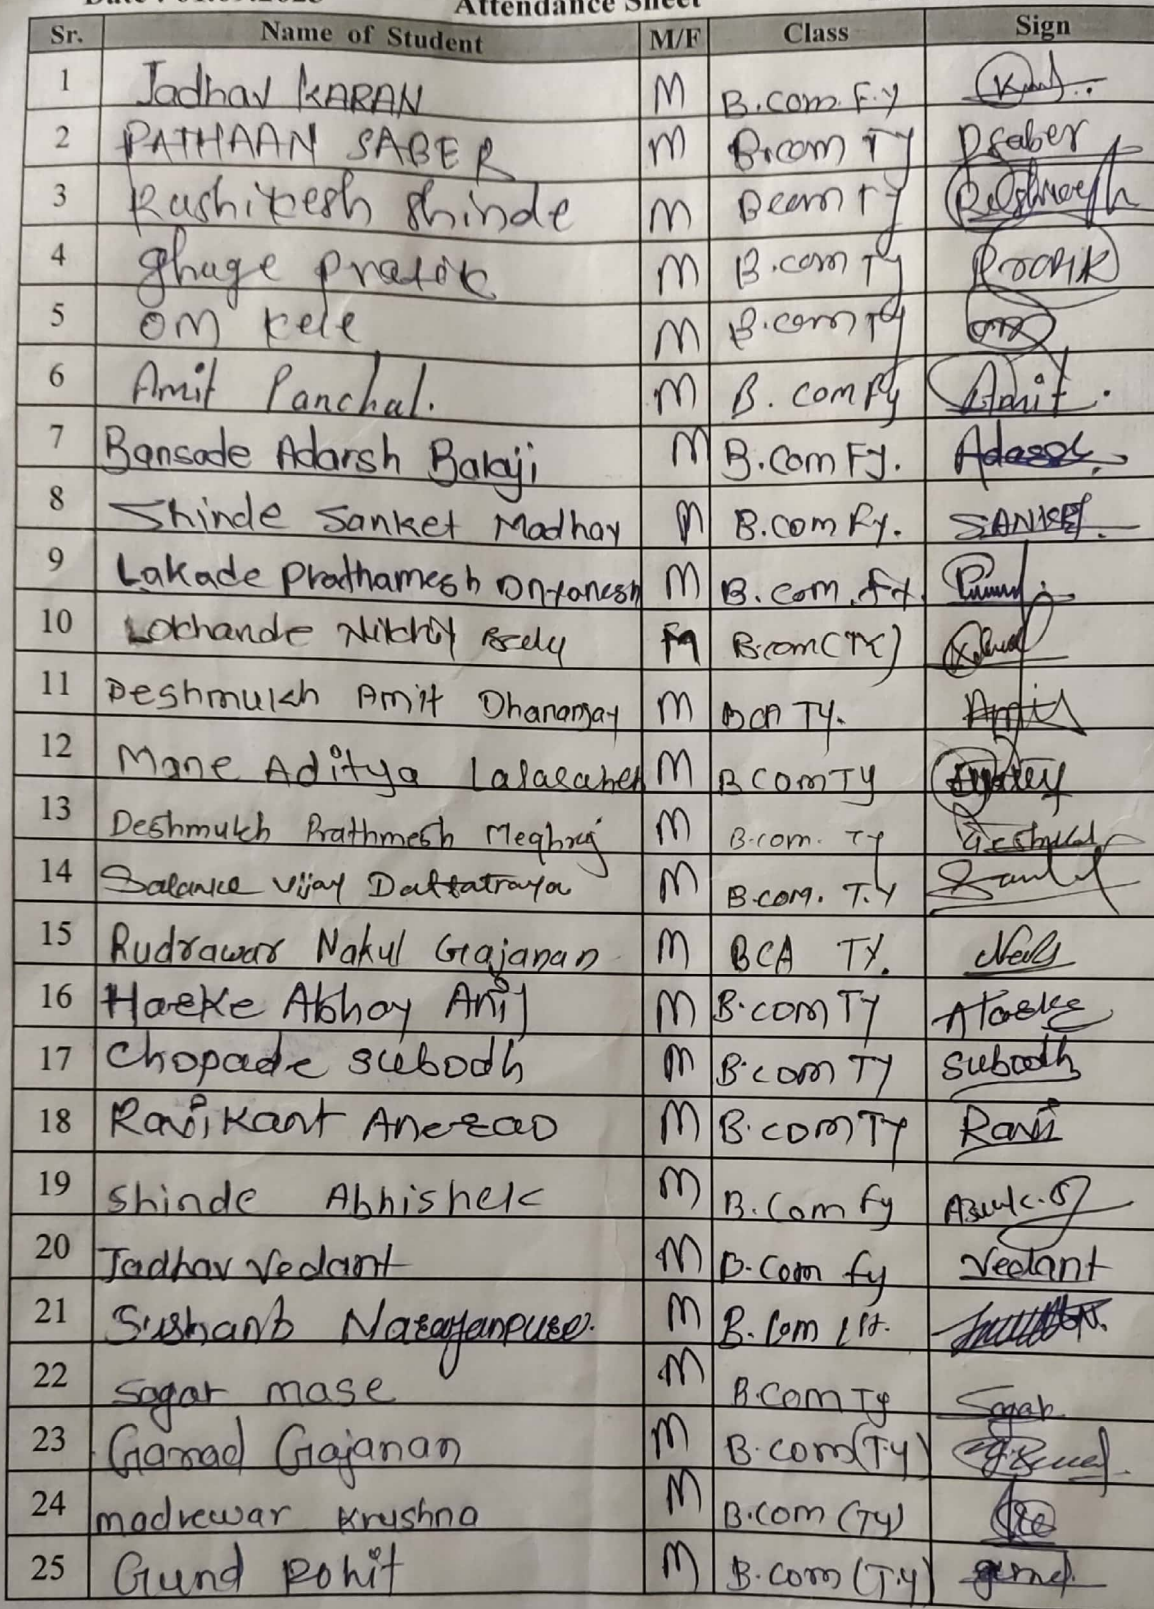 Attendance Sheet
Sr. Name of Student M/F Class Sign
1 Jadhav KARAN M B.com F.y
2 PATHAAN SABER M B.com Ty Psaber
3 Rushikesh Shinde M Bcom Ty
4 ghuge pratik M B.com Ty Pratik
5 Om kele M B.com Ty om
6 Amit Panchal. M B. com Fy Amit.
7 Bansode Adarsh Balaji M B.Com Fy. Adarsh
8 Shinde Sanket Madhav M B.com Fy. SANKET.
9 Lakade Prathamesh Dnyanesh M B. com. Fy.
10 Lokhande M B.com (TY)
11 Deshmukh Amit Dhananjay M BCA TY. Amit
12 Mane Aditya Lalasaheb M B COM TY
13 Deshmukh Prathmesh Meghraj M B.com. Ty
14 Salanke Vijay Dattatraya M B.com. T.Y
15 Rudrawar Nakul Gajanan M BCA TY.
16 Haske Abhay Anil M B.com TY
17 Chopade subodh M B.com TY subodh
18 Ravikant Anerao M B.com TY Ravi
19 Shinde Abhishek M B. Com fy
20 Jadhav Vedant M B.Com fy Vedant
21 Sushant Narayanpure. M B. Com
22 Sagar mase M B.Com Ty Sagar
23 Garad Gajanan M B.com (T.y)
24 madrewar Krushna M B.com (Ty)
25 Gund Rohit M B.com (T.y) gund